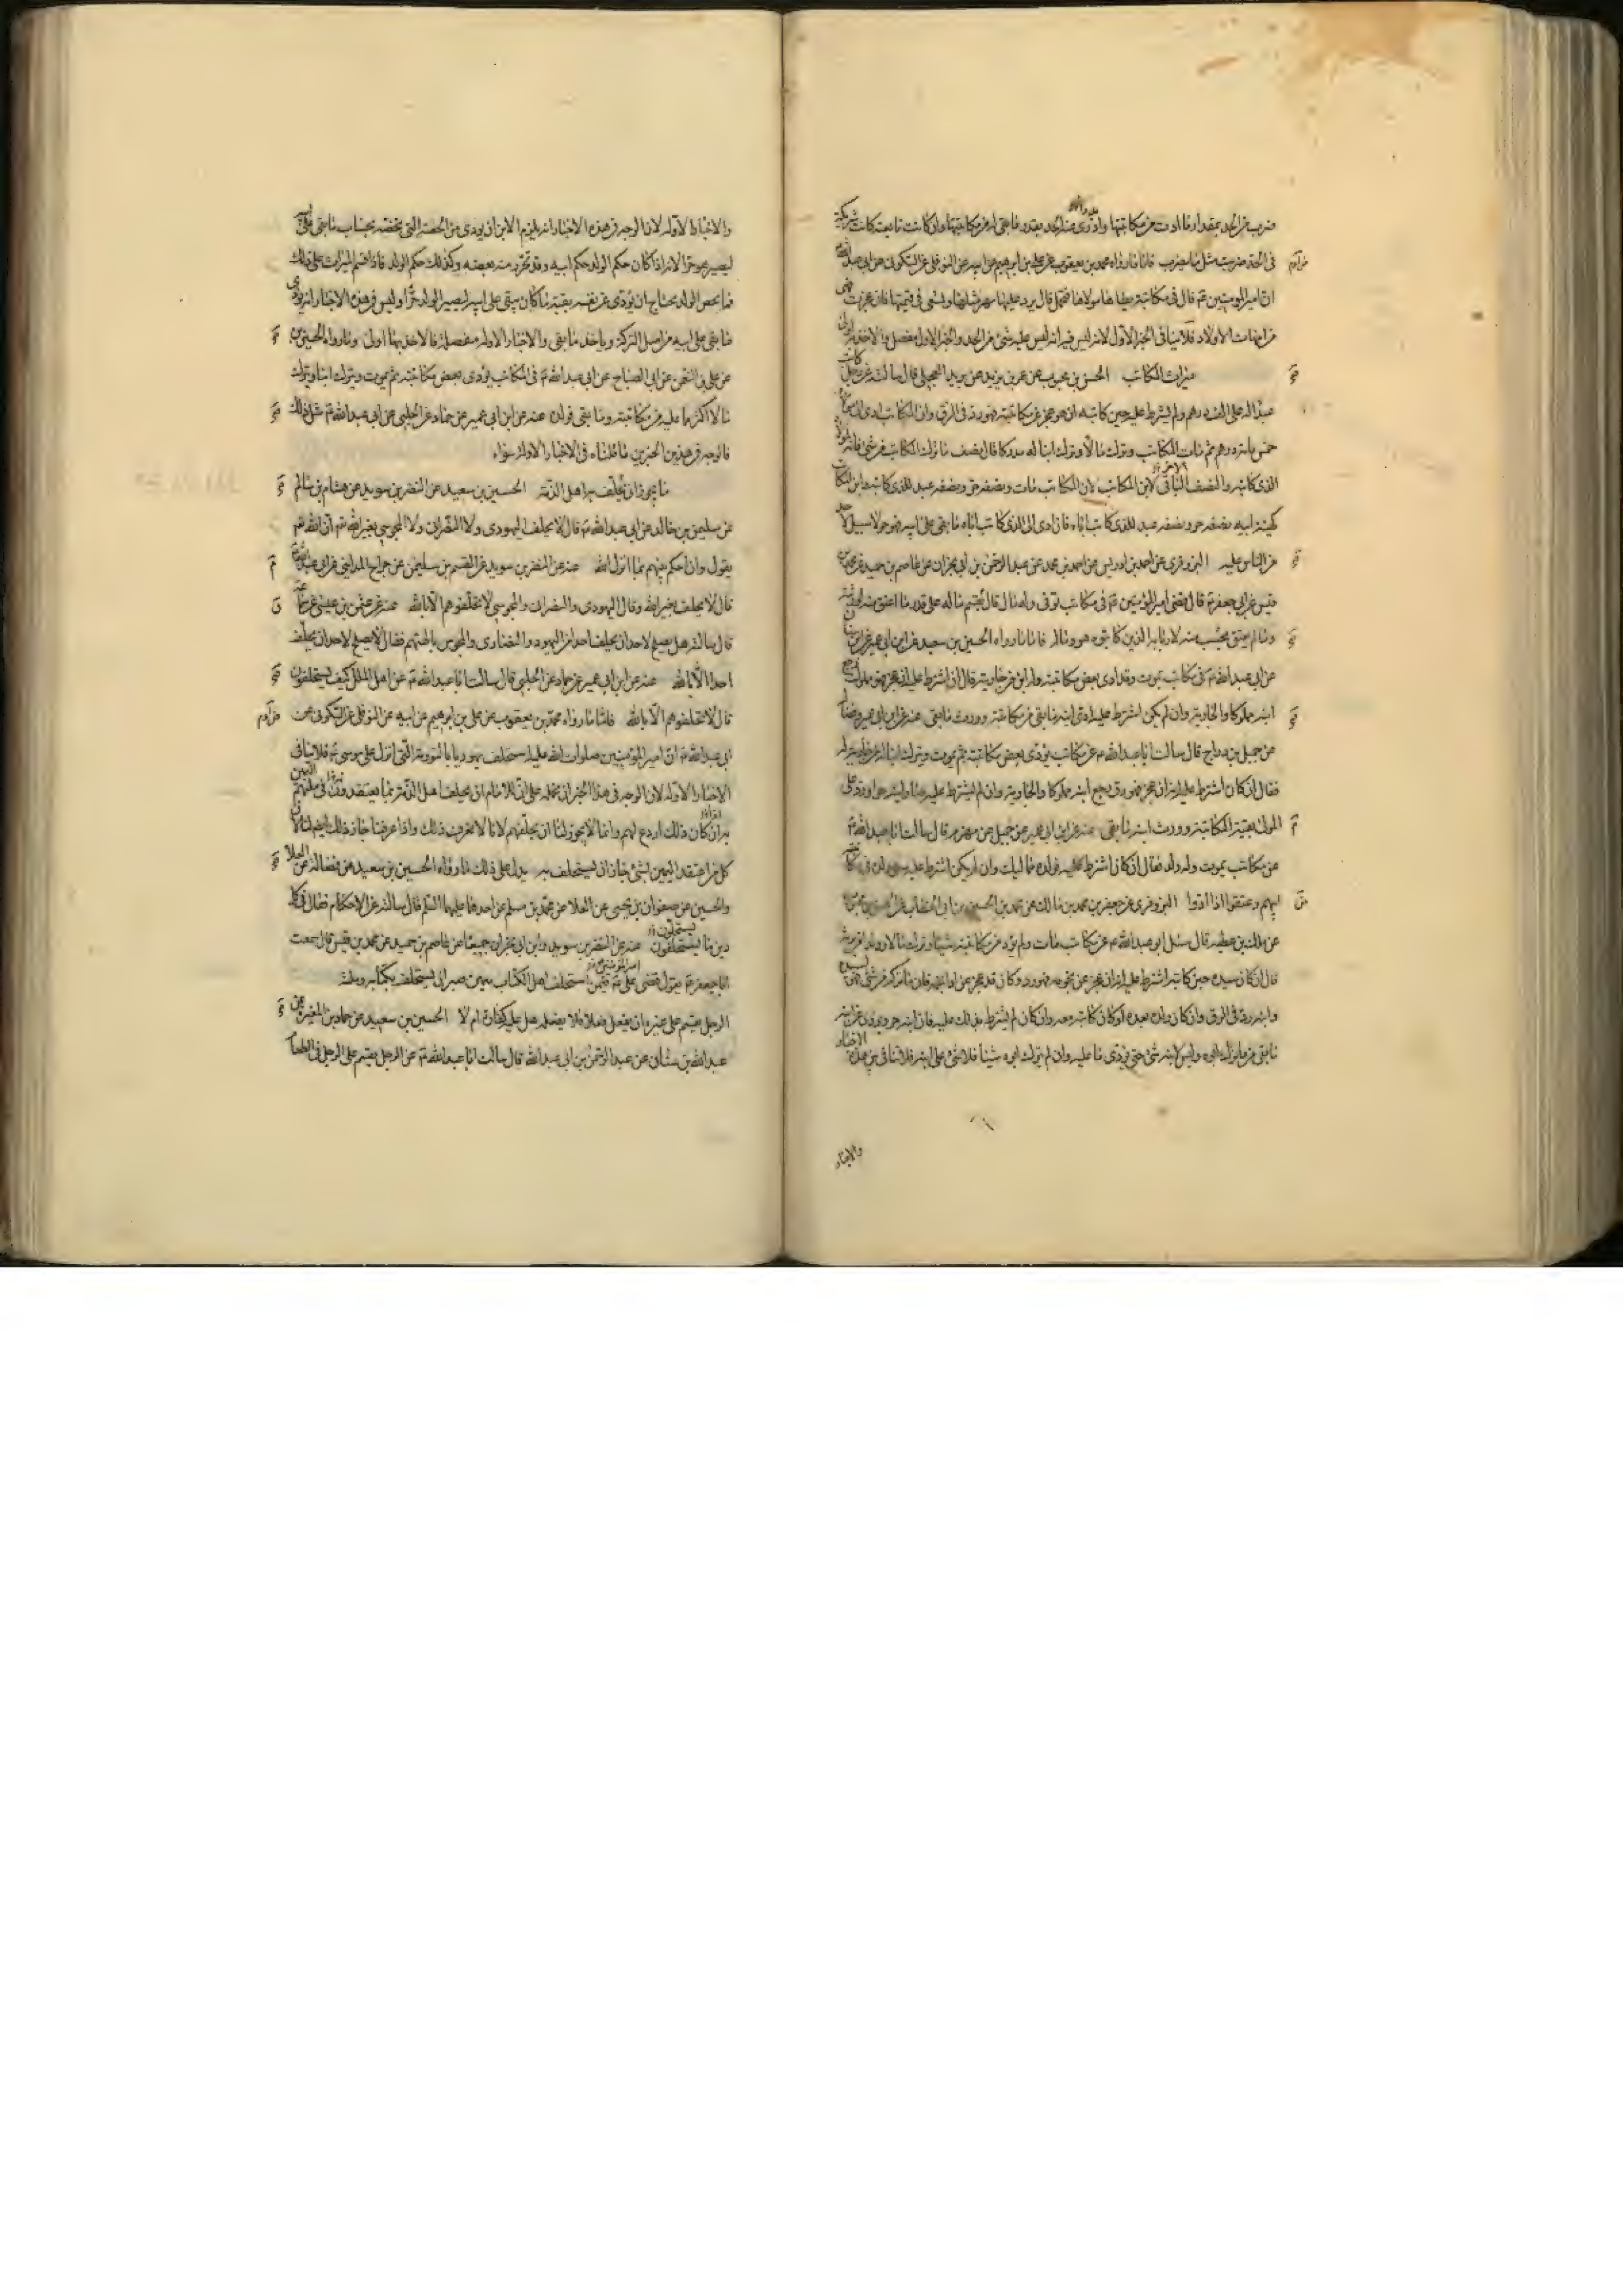 ضرب من الحد بمقدار ما ادت من مكاتبتها ودرئ عنها من الحد بقدر ما بقي له من مكاتبتها وان كانت تابعته كانت شريكته
في الحد ضربت مثل ما يضرب فاما ما رواه محمد بن يعقوب عن علي بن ابرهيم عن ابيه عن النوفلي عن السكوني عن ابي عبد الله
ان امير المؤمنين ع قال في مكاتبة يطأها مولاها فتحمل قال يرد عليها مهر مثلها وتسعى في قيمتها فان عجزت فهي
من امهات الاولاد فلا ينافي الخبر الاول لانه ليس فيه انه ليس عليه شئ من الحد والخبر الاول مفصل والاخذ به اولى
ميراث المكاتب الحسن بن محبوب عن عمر بن يزيد عن بريد العجلي قال سالته عن رجل كاتب
عبدا له على الف درهم ولم يشترط عليه حين كاتبه ان هو عجز عن مكاتبته فهو رد في الرق وان المكاتب ادى الى مولاه
خمس مائة درهم ثم مات المكاتب وترك مالا وترك ابنا له مدركا قال نصف ما ترك المكاتب من شئ فانه لمولاه
الذي كاتبه والنصف الباقي لابن المكاتب لان المكاتب مات ونصفه حر ونصفه عبد للذي كاتبه فابن المكاتب
كهيئة ابيه نصفه حر ونصفه عبد للذي كاتب اباه فان ادى الى الذي كاتب اباه ما بقي على ابيه فهو حر لا سبيل لاحد
من الناس عليه البزوفري عن احمد بن ادريس عن احمد بن محمد عن عبد الرحمن بن ابي نجران عن عاصم بن حميد عن محمد بن
قيس عن ابي جعفر ع قال قضى امير المؤمنين ع في مكاتب توفى وله مال قال يقسم ماله على قدر ما اعتق منه لورثته
وما لم يعتق يحتسب منه لاربابه الذين كاتبوه هو ماله فاما ما رواه الحسين بن سعيد عن ابن ابي عمير عن ابن سنان
عن ابي عبد الله ع في مكاتب يموت وقد ادى بعض مكاتبته وله ابن من جاريته قال ان اشترط عليه ان عجز فهو مملوك رجع
ابنه مملوكا والجارية وان لم يكن اشترط عليه ادى ابنه ما بقي من مكاتبته وورث ما بقي عنه عن ابن ابي عمير وفضالة
عن جميل بن دراج قال سالت ابا عبد الله ع عن مكاتب يؤدي بعض مكاتبته ثم يموت ويترك ابنا له من جارية له
فقال ان كان اشترط عليه انه ان عجز فهو رق رجع ابنه مملوكا والجارية وان لم يشترط عليه صار ابنه حرا ورد على
المولى بقية المكاتبة وورث ابنه ما بقي عنه عن ابن ابي عمير عن جميل عن مهزم قال سالت ابا عبد الله ع
عن مكاتب يموت وله ولد فقال ان كان اشترط عليه فولده مماليك وان لم يكن اشترط عليه سعى ولده في مكاتبة
ابيهم وعتقوا اذا ادوا البزوفري عن جعفر بن محمد بن مالك عن محمد بن الحسين بن ابي الخطاب
عن مالك بن عطية قال سئل ابو عبد الله ع عن مكاتب مات ولم يؤد من مكاتبته شيئا وترك مالا وولدا من يرثه
قال ان كان سيده حين كاتبه اشترط عليه انه ان عجز عن نجومه فهو رد وكان قد عجز عن اداء نجمه فان ما ترك من شئ فهو لسيده
وابنه رد في الرق وان كان ولده بعده او كان كاتبه معه وان كان لم يشترط ذلك عليه فان ابنه حر ويؤدي عن ابيه
ما بقي مما ترك ابوه وليس لابنه شئ حتى يؤدي ما عليه وان لم يترك ابوه شيئا فلا شئ على ابنه فلا تنافي بين هذه الاخبار
والاخبار
والاخبار الاوله لان الوجه في هذه الاخبار انه يلزم الابن ان يؤدي من الحصة التي تخصه بحساب ما بقي على ابيه
ليصير هو حرا لانه اذا كان حكم الولد حكم ابيه وقد تحرر منه بعضه وكذلك حكم الولد فاذا قسم الميراث على ذلك
فما يخص الولد يحتاج ان يؤدي عن نفسه بقية ما كان يبقى على ابيه ليصير الولد حرا وليس في هذه الاخبار انه يؤدي
ما بقي على ابيه من اصل التركة وياخذ ما بقي والاخبار الاوله مفصلة فالاخذ بها اولى وما رواه الحسين
عن علي بن النعمن عن ابي الصباح عن ابي عبد الله ع في المكاتب يؤدي بعض مكاتبته ثم يموت ويترك ابنا ويترك
مالا اكثر مما عليه من مكاتبته وما بقي فولده عنه عن ابن ابي عمير عن حماد عن الحلبي عن ابي عبد الله ع مثل ذلك
فالوجه في هذين الخبرين ما قلناه في الاخبار الاوله سواء
ما يجوز ان يحلف به اهل الذمة الحسين بن سعيد عن النضر بن سويد عن هشام بن سالم
عن سليمن بن خالد عن ابي عبد الله ع قال لا يحلف اليهودي ولا النصراني ولا المجوسي بغير الله تع ان الله تع
يقول وان احكم بينهم بما انزل الله عنه عن النضر بن سويد عن القسم بن سليمن عن جراح المدايني عن ابي عبد الله ع
قال لا يحلف بغير الله وقال اليهودي والنصراني والمجوسي لا تحلفوهم الا بالله عنه عن عثمن بن عيسى عن سماعة
قال سالته هل يصلح لاحد ان يحلف احدا من اليهود والنصارى والمجوس بالهتهم فقال لا يصلح لاحد ان يحلف
احدا الا بالله عنه عن ابن ابي عمير عن حماد عن الحلبي قال سالت ابا عبد الله ع عن اهل الملل كيف يستحلفون
قال لا تحلفوهم الا بالله فاما ما رواه محمد بن يعقوب عن علي بن ابرهيم عن ابيه عن النوفلي عن السكوني عن
ابي عبد الله ع ان امير المؤمنين صلوات الله عليه استحلف يهوديا بالتورية التي انزل على موسى ع فلا ينافي
الاخبار الاوله لان الوجه في هذا الخبر ان نحمله على ان للامام ان يحلف اهل الذمة بما يعتقدون في ملتهم اليمين
به ان كان ذلك اردع لهم وانما لا يجوز لنا ان نحلفهم لانا لا نعرف ذلك واذا عرفنا جاز ذلك ايضا لنا لان
كل من اعتقد اليمين بشئ جاز ان يستحلف به يدل على ذلك ما رواه الحسين بن سعيد عن فضالة عن العلا
والحسين عن صفوان بن يحيى عن العلا عن محمد بن مسلم عن احدهما عليهما السلم قال سالته عن الاحكام فقال في كل
دين ما يستحلفون عنه عن النضر بن سويد وابن ابي نجران جميعا عن عاصم بن حميد عن محمد بن قيس قال سمعت
ابا جعفر ع يقول قضى علي ع فيمن استحلف اهل الكتاب بيمين صبر ان يستحلف بكتابه وملته
الرجل يقسم على غيره ان يفعل فعلا فلا يفعله هل عليه كفارة ام لا الحسين بن سعيد عن حماد بن المغيرة عن
عبد الله بن سنان عن عبد الرحمن بن ابي عبد الله قال سالت ابا عبد الله ع عن الرجل يقسم على الرجل في الطعام